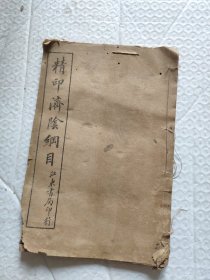 精印濟陰綱目
江東書局印行